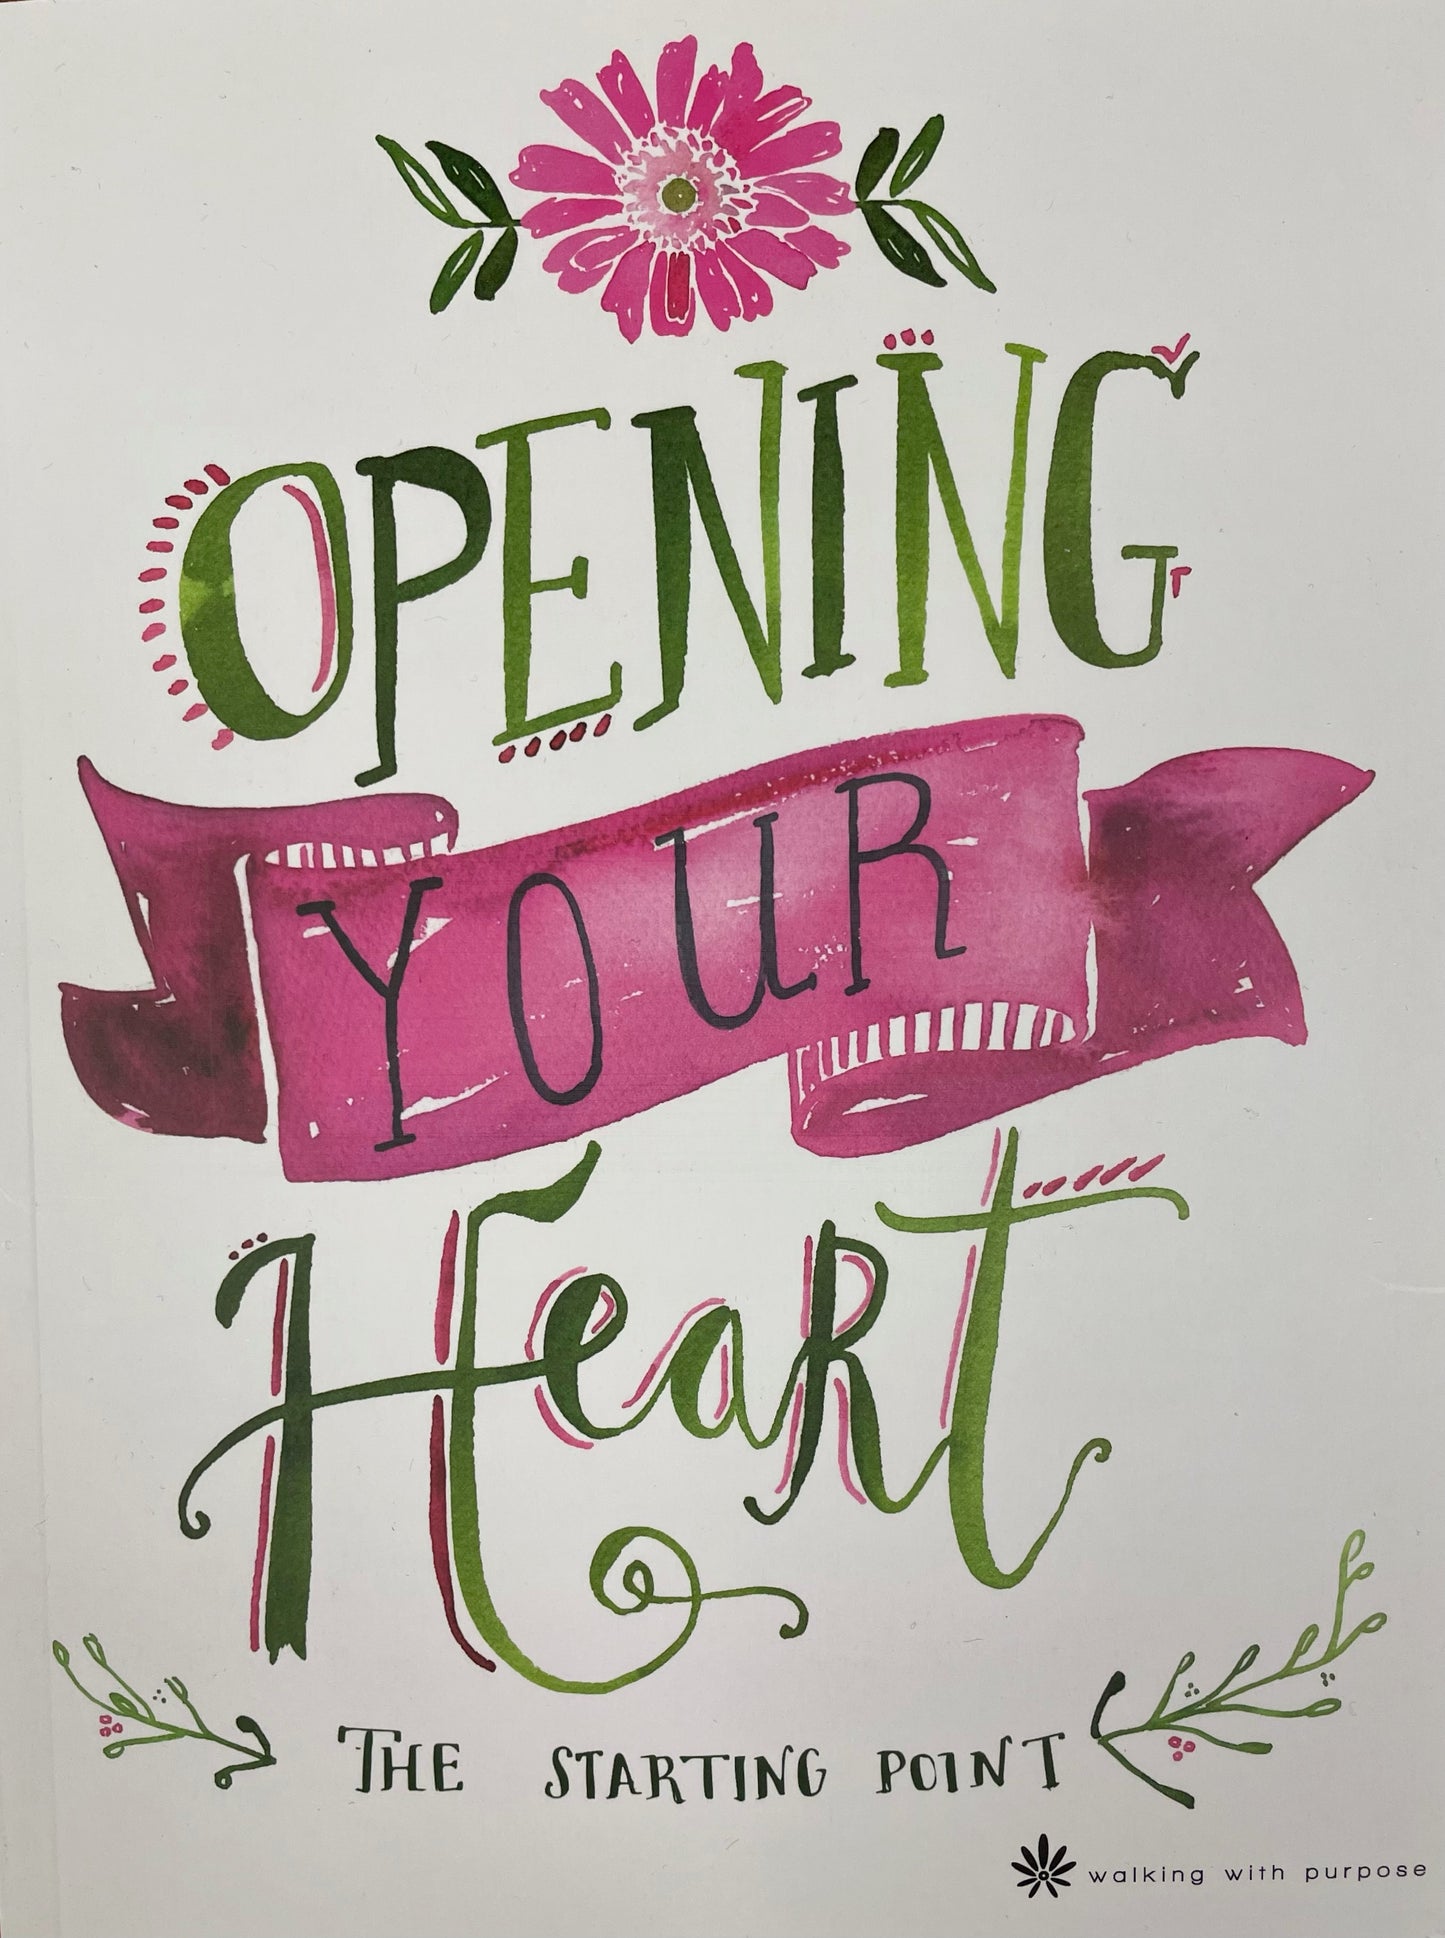 OPENING
YOUR
HeaRt
THE STARTING POINT
walking with purpose